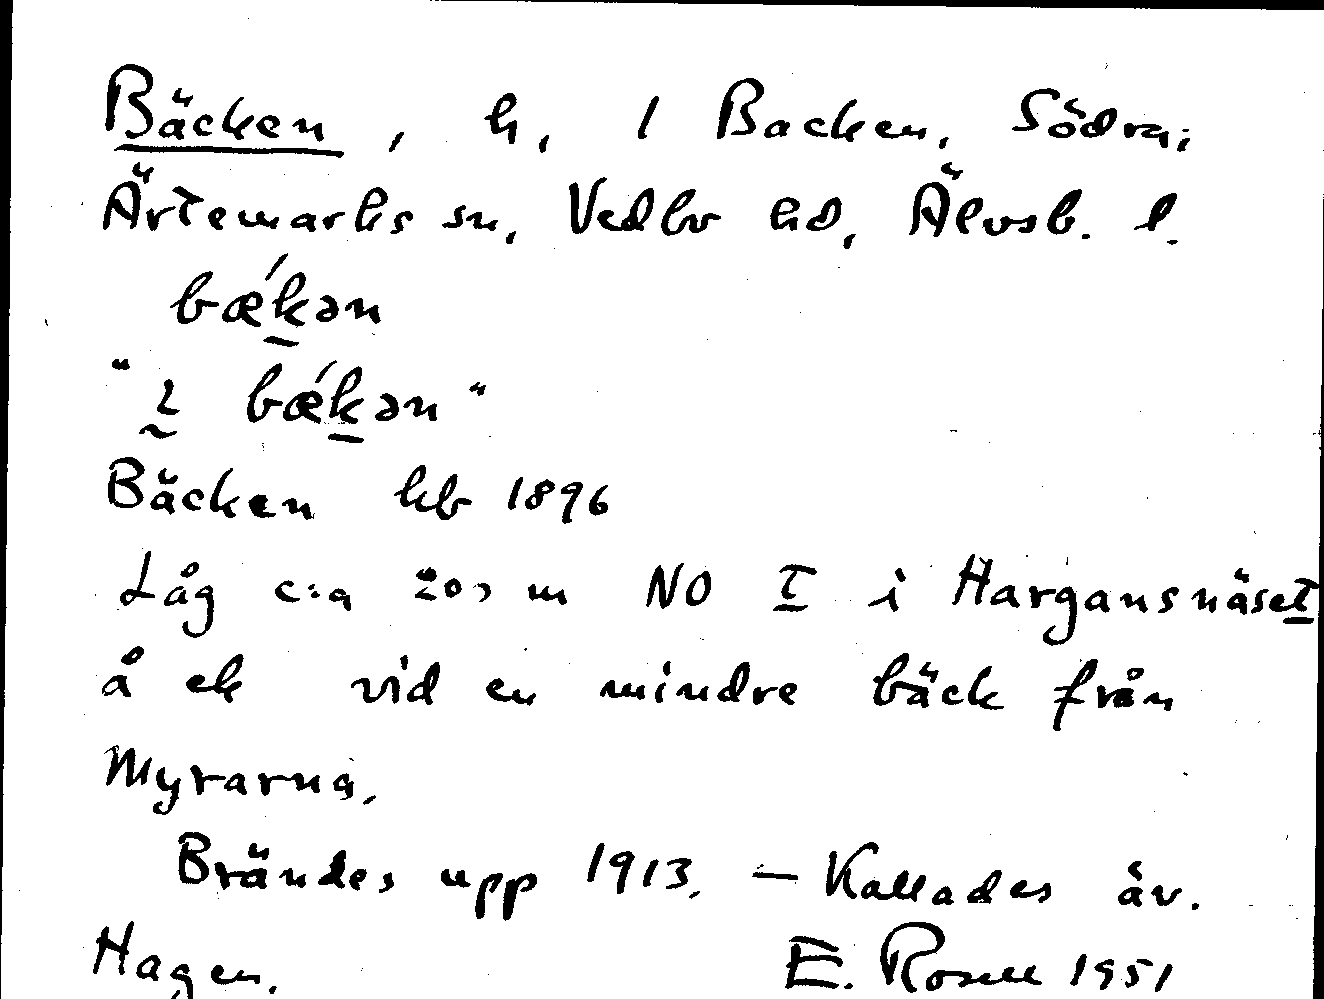 Bäcken, h, 1 Backen, Södra;
Ärtemarks sn, Vedbo hd, Älvsb. l.
bǽkən
"ɩ bǽkən"
Bäcken hb 1896
Låg c:a 200 m NO I i Hargansnäset
å ek vid en mindre bäck från
Myrarna.
Brändes upp 1913. – Kallades äv.
Hagen. E. Rosell 1951